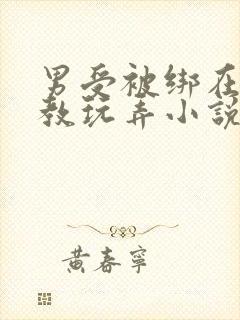 男受被绑在
教玩弄小説
黄春寧